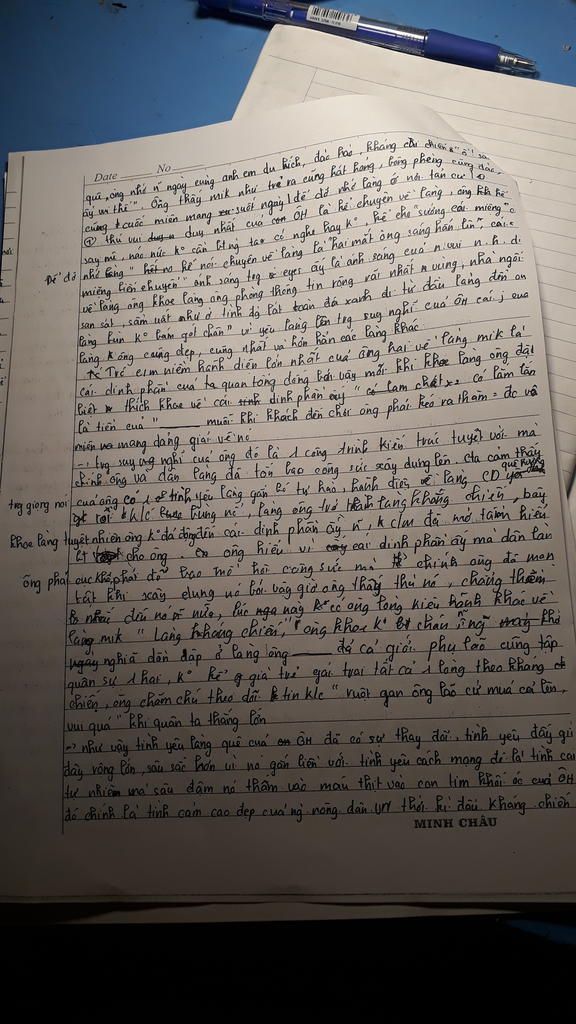 Date No
quê, ông nhớ n ngày cùng anh em du kích, đào hào, kháng chi chiến "ồ! sao
ấy vui thế". Ông thấy mik như trẻ ra cũng hát hỏng, bông phèng cũng đào,
cũng cuốc miên mang suốt ngày để đỡ nhớ làng ở nơi tản cư
thú vui duy nhất của ÔH là kể chuyện về làng, ông kh kể
Để đỡ nhớ làng
say mê, náo nức k° cần bt ng ta có nghe hay k° kể cho "sướng cái miệng"
"hết nó kể nói chuyện về làng là hai mắt ông sáng hẳn lên, cái
miệng biến chuyển" ánh sáng trg eyes ấy là ánh sáng của n.vui n.h.d.
về làng ông khoe làng ông phòng thông tin rộng rãi nhất vùng, nhà ngói
san sát, sầm uất như ở tỉnh đg lát toàn đá xanh đi từ đầu làng đến cuối
làng bùn k° bám gót chân" vì yêu làng lên trg suy nghĩ của ÔH cái j của
làng ông cũng đẹp, cũng nhất và hơn hẳn các làng khác
Trc đây niềm hãnh diện lớn nhất của ông hai về làng mik là
cái dinh phần của ta quan tổng đống bởi vậy mỗi khi khoe làng ông đặc
biệt thích khoe về cái dinh phần ấy "có lắm chết x2 có lắm lăn
là tiên của" muỗi khi khách đến chơi ông phải kéo ra thăm = đc và
mang dáng giải về nó
trg suy nghĩ của ông đó là 1 công trình kiến trúc tuyệt vời mà
chính ông và dân làng đã tốn bao công sức xây dựng lên. cta cảm thấy
trg giọng nói của ông có 1 tình yêu làng gắn bó tự hào, hãnh diện về làng quê hương
klc bùng nổ, làng ông trở thành làng kháng chiến, bây
khoe làng tuyệt nhiên ông k° đả động đến cái dinh phần ấy n, k° còn đã mở tầm hiểu
bt cho ông ông hiểu vì cái dinh phần ấy mà dân làng
ông phải cực khổ, phải đổ bao mồ hôi công sức mà chính ông đã mang
tật khi xây dựng nó bởi vậy giờ ông thấy thù nó, chẳng thèm
nhắc đến nó nữa, lúc này ông lòng kiêu hãnh khác về
làng mik "Làng kháng chiến," ông khoe k° bt chán khởi
nghĩa dồn dập ở làng ông đã cả giới phụ lão cũng tập
quân sự 1 hai, k° kể già trẻ gái trai tất cả 1 làng theo kháng
chiến, ông chăm chú theo dõi tin klc "ruột gan ông lão cứ múa cả lên,
vui quá" khi quân ta thắng lớn
-> như vậy tình yêu làng quê của ÔH đã có sự thay đổi, tình yêu đấy giờ
đây rộng lớn, sâu sắc hơn vì nó gắn liền với tình yêu cách mạng đó là tình cảm
tự nhiên mà sâu đậm nó thấm vào máu thịt vào con tim khối óc của ÔH
đó chính là tình cảm cao đẹp của ng nông dân VN thời kì đầu kháng chiến
MINH CHÂU